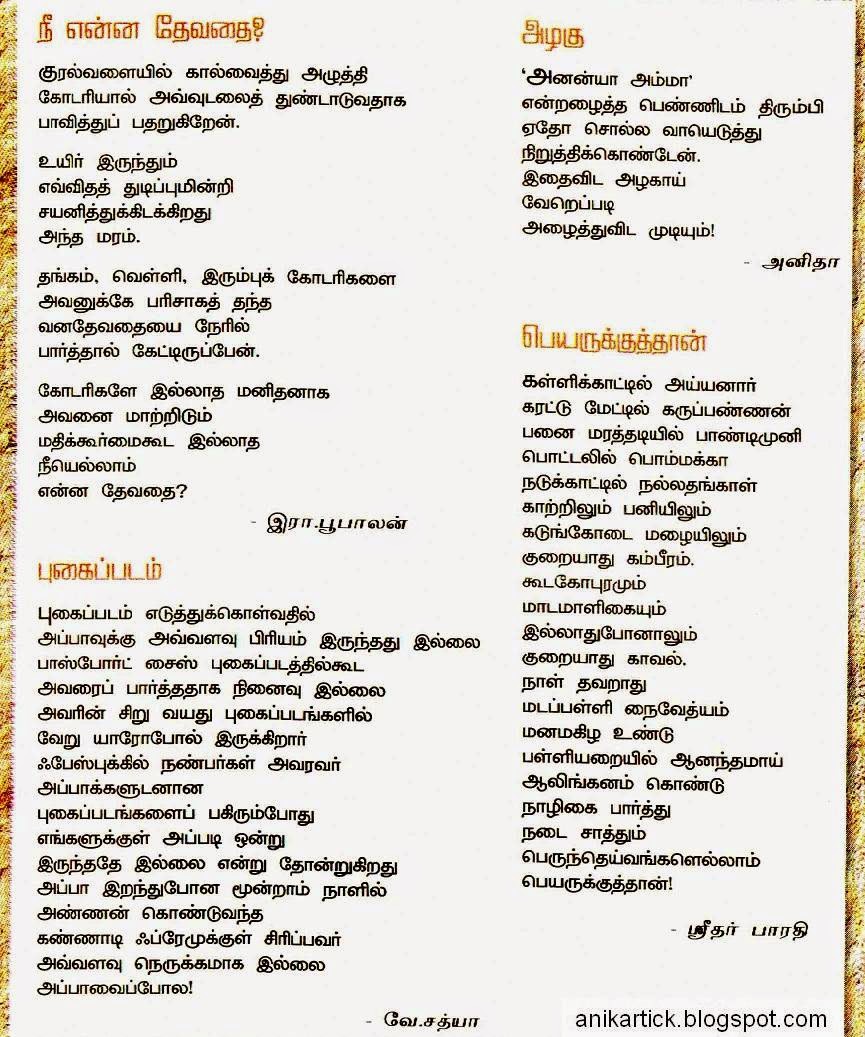 நீ என்ன தேவதை?
குரல்வளையில் கால்வைத்து அழுத்தி
கோடரியால் அவ்வுடலைத் துண்டாடுவதாக
பாவித்துப் பதறுகிறேன்.
உயிர் இருந்தும்
எவ்விதத் துடிப்புமின்றி
சயனித்துக்கிடக்கிறது
அந்த மரம்.
தங்கம், வெள்ளி, இரும்புக் கோடரிகளை
அவனுக்கே பரிசாகத் தந்த
வனதேவதையை நேரில்
பார்த்தால் கேட்டிருப்பேன்.
கோடரிகளே இல்லாத மனிதனாக
அவனை மாற்றிடும்
மதிக்கூர்மைகூட இல்லாத
நீயெல்லாம்
என்ன தேவதை?
- இரா.பூபாலன்
புகைப்படம்
புகைப்படம் எடுத்துக்கொள்வதில்
அப்பாவுக்கு அவ்வளவு பிரியம் இருந்தது இல்லை
பாஸ்போர்ட் சைஸ் புகைப்படத்தில்கூட
அவரைப் பார்த்ததாக நினைவு இல்லை
அவரின் சிறு வயது புகைப்படங்களில்
வேறு யாரோபோல் இருக்கிறார்
ஃபேஸ்புக்கில் நண்பர்கள் அவரவர்
அப்பாக்களுடனான
புகைப்படங்களைப் பகிரும்போது
எங்களுக்குள் அப்படி ஒன்று
இருந்ததே இல்லை என்று தோன்றுகிறது
அப்பா இறந்துபோன மூன்றாம் நாளில்
அண்ணன் கொண்டுவந்த
கண்ணாடி ஃப்ரேமுக்குள் சிரிப்பவர்
அவ்வளவு நெருக்கமாக இல்லை
அப்பாவைப்போல!
- வே.சத்யா
அழகு
'அனன்யா அம்மா'
என்றழைத்த பெண்ணிடம் திரும்பி
ஏதோ சொல்ல வாயெடுத்து
நிறுத்திக்கொண்டேன்.
இதைவிட அழகாய்
வேறெப்படி
அழைத்துவிட முடியும்!
- அனிதா
பெயருக்குத்தான்
கள்ளிக்காட்டில் அய்யனார்
கரட்டு மேட்டில் கருப்பண்ணன்
பனை மரத்தடியில் பாண்டிமுனி
பொட்டலில் பொம்மக்கா
நடுக்காட்டில் நல்லதங்காள்
காற்றிலும் பனியிலும்
கடுங்கோடை மழையிலும்
குறையாது கம்பீரம்.
கூடகோபுரமும்
மாடமாளிகையும்
இல்லாதுபோனாலும்
குறையாது காவல்.
நாள் தவறாது
மடப்பள்ளி நைவேத்யம்
மனமகிழ உண்டு
பள்ளியறையில் ஆனந்தமாய்
ஆலிங்கனம் கொண்டு
நாழிகை பார்த்து
நடை சாத்தும்
பெருந்தெய்வங்களெல்லாம்
பெயருக்குத்தான்!
- ஸ்ரீதர் பாரதி
anikartick.blogspot.com